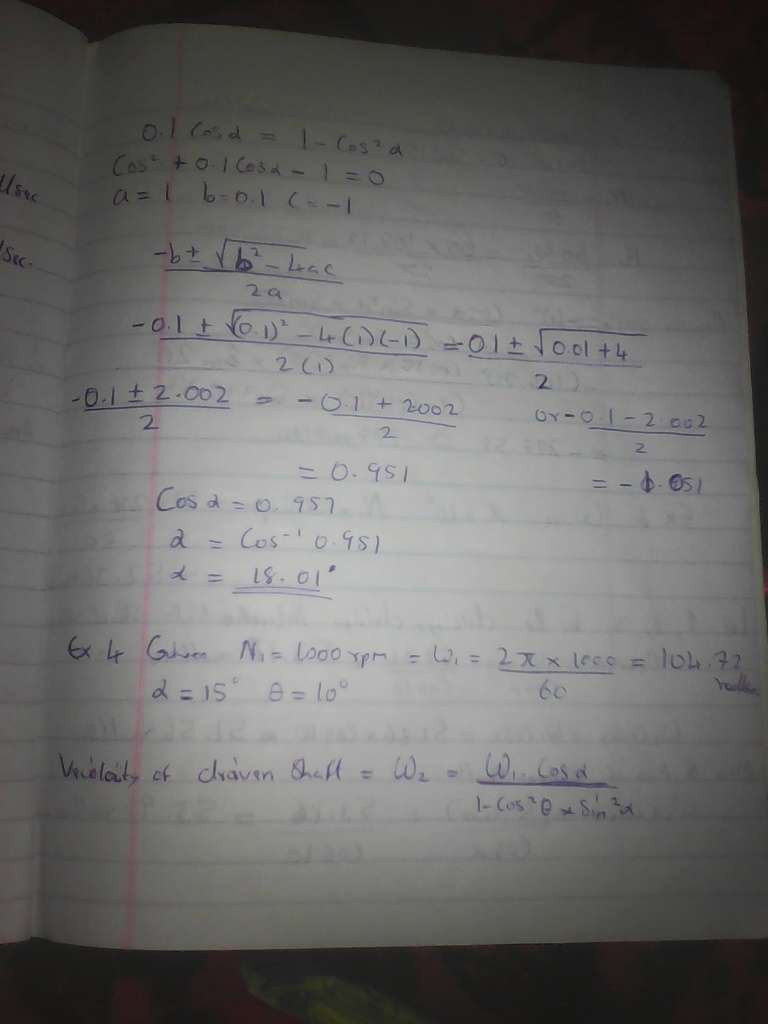 U/sec
/Sec.
0.1 Cosα = 1 - Cos²α
Cos² + 0.1 Cosα - 1 = 0
a = 1 b = 0.1 C = -1
-b ± √b² - 4ac
2a
-0.1 ± √(0.1)² - 4(1)(-1) = -0.1 ± √0.01 + 4
2(1) 2
-0.1 ± 2.002 = -0.1 + 2002 or -0.1 - 2.002
2 2 2
= 0.951 = -1.051
Cosα = 0.957
α = Cos⁻¹ 0.951
α = 18.01°
Ex 4 Given N₁ = 1000 rpm = ω₁ = 2π × 1000 = 104.72
60
α = 15° θ = 10°
Velocity of driven Shaft = ω₂ = ω₁ Cosα
1 - Cos²θ × Sin²α